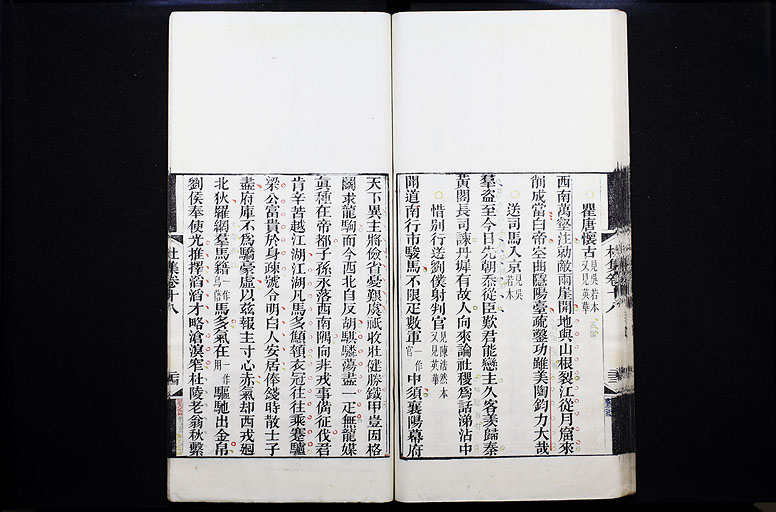 瞿唐懷古 見吳若本 又見英華
西南萬壑注勍敵兩崖開地與山根裂江從月窟來
削成當白帝空曲隱陽臺疏鑿功雖美陶鈞力大哉
送司馬入京 見吳若本
羣盗至今日先朝忝從臣歎君能戀主久客羨歸秦
黃閣長司諫丹墀有故人向來論社稷爲話涕沾巾
惜別行送劉僕射判官 見陳浩然本 又見英華
聞道南行市駿馬不限疋數軍 一作官 中須襄陽幕府
天下異主將儉省憂艱虞祇收壯健勝鐵甲豈因格
鬬求龍駒而今西北自反胡騏驎蕩盡一疋無龍媒
眞種在帝都子孫永落西南隅向非戎事備征伐君
肯辛苦越江湖江湖凡馬多顦顇衣冠往往乘蹇驢
梁公富貴於身疎號令明白人安居俸錢時散士子
盡府庫不爲驕豪虛以兹報主寸心赤氣却西戎迴
北狄羅網羣馬籍 一作藉 馬多氣在 一作用 驅馳出金帛
劉侯奉使光推擇滔滔才略滄溟窄杜陵老翁秋繫
杜集卷十八